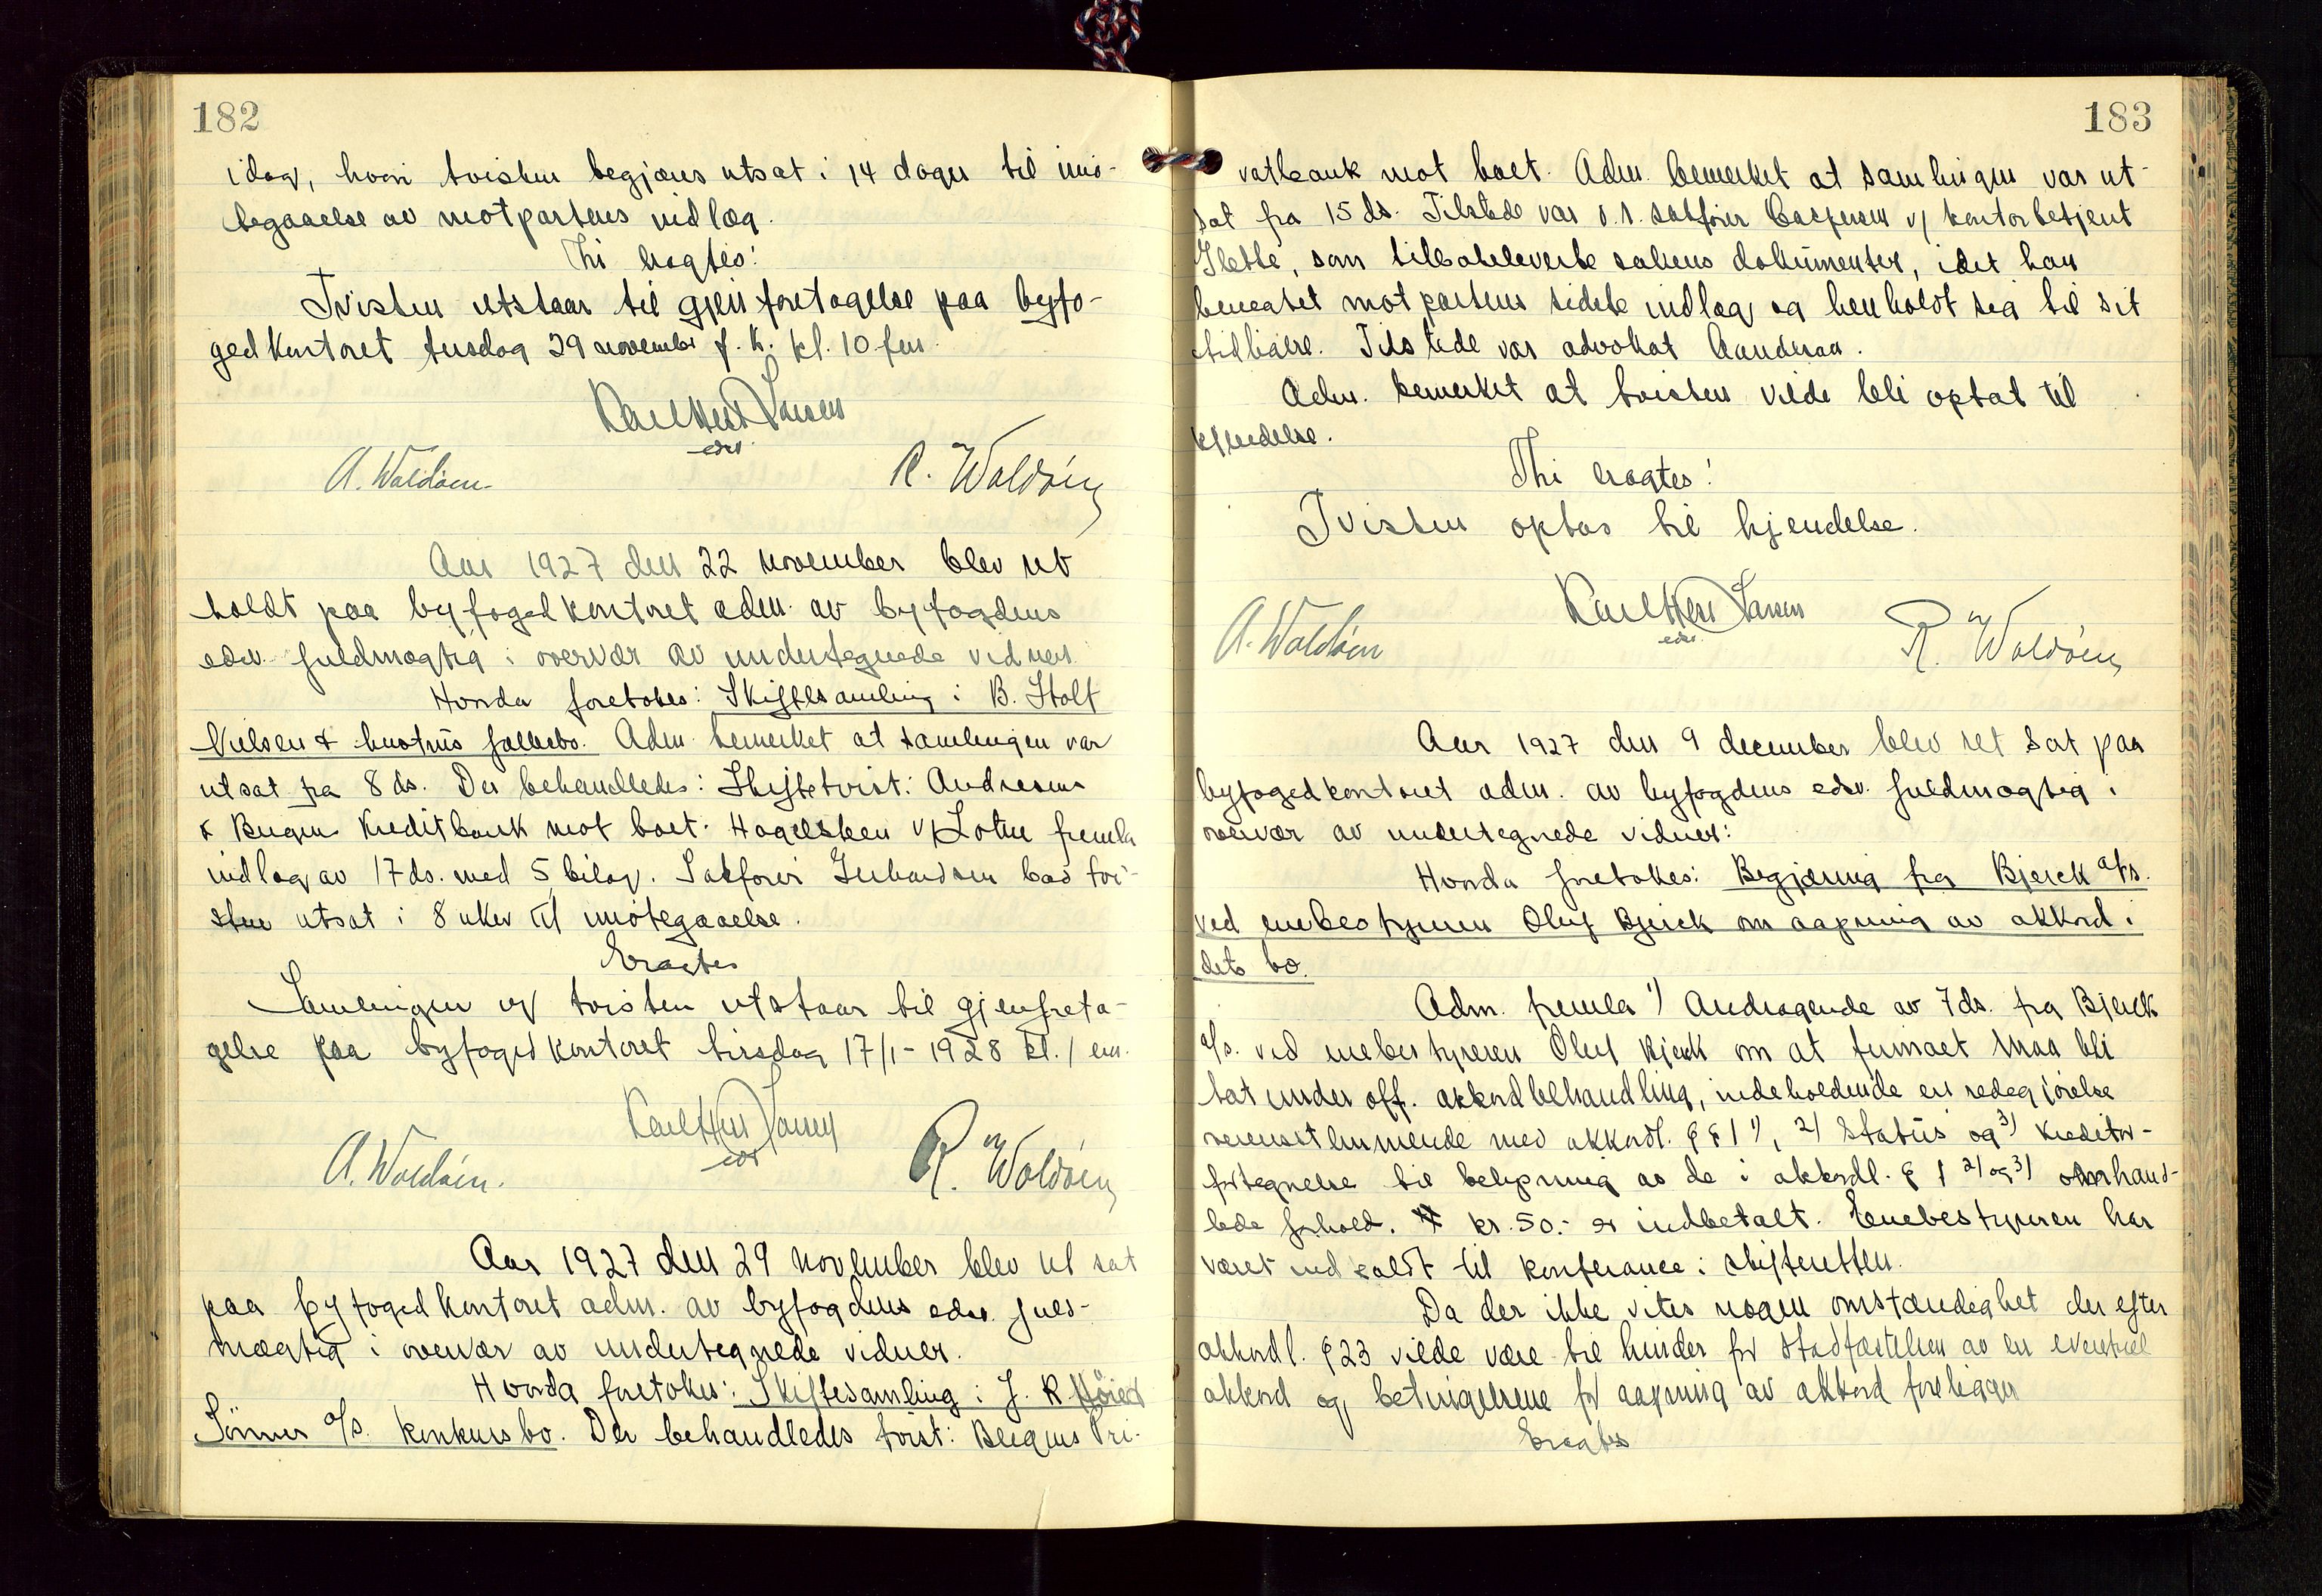 182
idag, hvori tvisten begjæres utsat i 14 dager til imø-
tegaaelse av motpartens indlæg.
Thi eragtes:
Tvisten utstaar til gjenforetagelse paa byfo-
gedkontoret tirsdag 29 november f. k. kl. 10 fm.
Karl Herd Larsen
edsv
A. Waldøen R. Waldøen
Aar 1927 den 22 november blev ret
holdt paa byfogedkontoret adm. av byfogdens
edsv. fuldmægtig i overvær av undertegnede vidner.
Hvorda foretokes: Skiftesamling i B. Stolt
Nielsen & hustrus fallitbo. Adm. bemerket at samlingen var
utsat fra 8 ds. Der behandledes: Skiftetvist: Andresens
& Bergens Kreditbank mot boet. Hagelsteen v/ Lothe fremla
indlæg av 17 ds. med 5 bilag. Sakfører Gerhardsen bad tvi-
sten utsat i 8 uker til imøtegaaelse.
Eragtes
Samlingen og tvisten utstaar til gjenforeta-
gelse paa byfogedkontoret tirsdag 17/1-1928 kl. 1 em.
Karl Herd Larsen
edsv
A. Waldøen. R. Waldøen
Aar 1927 den 29 november blev ret sat
paa byfogedkontoret adm. av byfogdens edsv. fuld-
mægtig i overvær av undertegnede vidner.
Hvorda foretokes: Skiftesamling i J. R.
Sønner a/s. konkursbo. Der behandledes tvist: Bergens Pri-
183
vatbank mot boet. Adm. bemerket at samlingen var ut-
sat fra 15 ds. Tilstede var o.r. sakfører Caspersen v/ kontorbetjent
Slette, som tilbakeleverte sakens dokumenter, idet han
benegtet motpartens sidste indlæg og henholdt sig til sit
tidligere. Tilstede var advokat Aanderaa.
Adm. bemerket at tvisten vilde bli optat til
kjendelse.
Thi eragtes!
Tvisten optas til kjendelse.
Karl Herd Larsen
edsv.
A. Waldøen R. Waldøen
Aar 1927 den 9 december blev ret sat paa
byfogedkontoret adm. av byfogdens edsv. fuldmægtig i
overvær av undertegnede vidner:
Hvorda foretokes: Begjæring fra Bjerck a/s.
ved enebestyreren Oluf Bjerck om aapning av akkord i
dets bo.
Adm. fremla 1) Andragende av 7 ds. fra Bjerck
a/s. ved enebestyreren Oluf Bjerck om at firmaet maa bli
tat under off. akkordbehandling, indeholdende en redegjørelse
overensstemmende med akkordl. § 1 1), 2) Status og 3) Kreditor-
fortegnelse til belysning av de i akkordl. § 1 2) og 3) omhand-
lede forhold. kr. 50.- er indbetalt. Enebestyreren har
været indkaldt til konferance i skifteretten.
Da der ikke vites nogen omstændighet der efter
akkordl. § 23 vilde være til hinder for stadfæstelsen av en eventuel
akkord og betingelsene for aapning av akkord foreligger
Eragtes